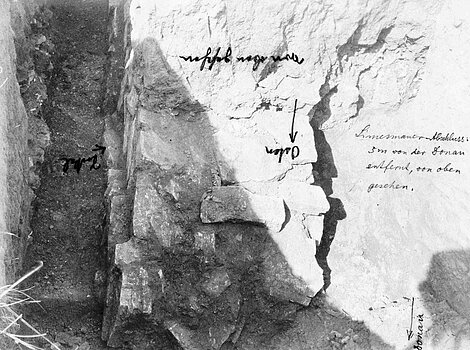 von oben gesehen
Osten
Limesmauer-Abschluss:
5m von der Donau
entfernt, von oben
gesehen.
Donau